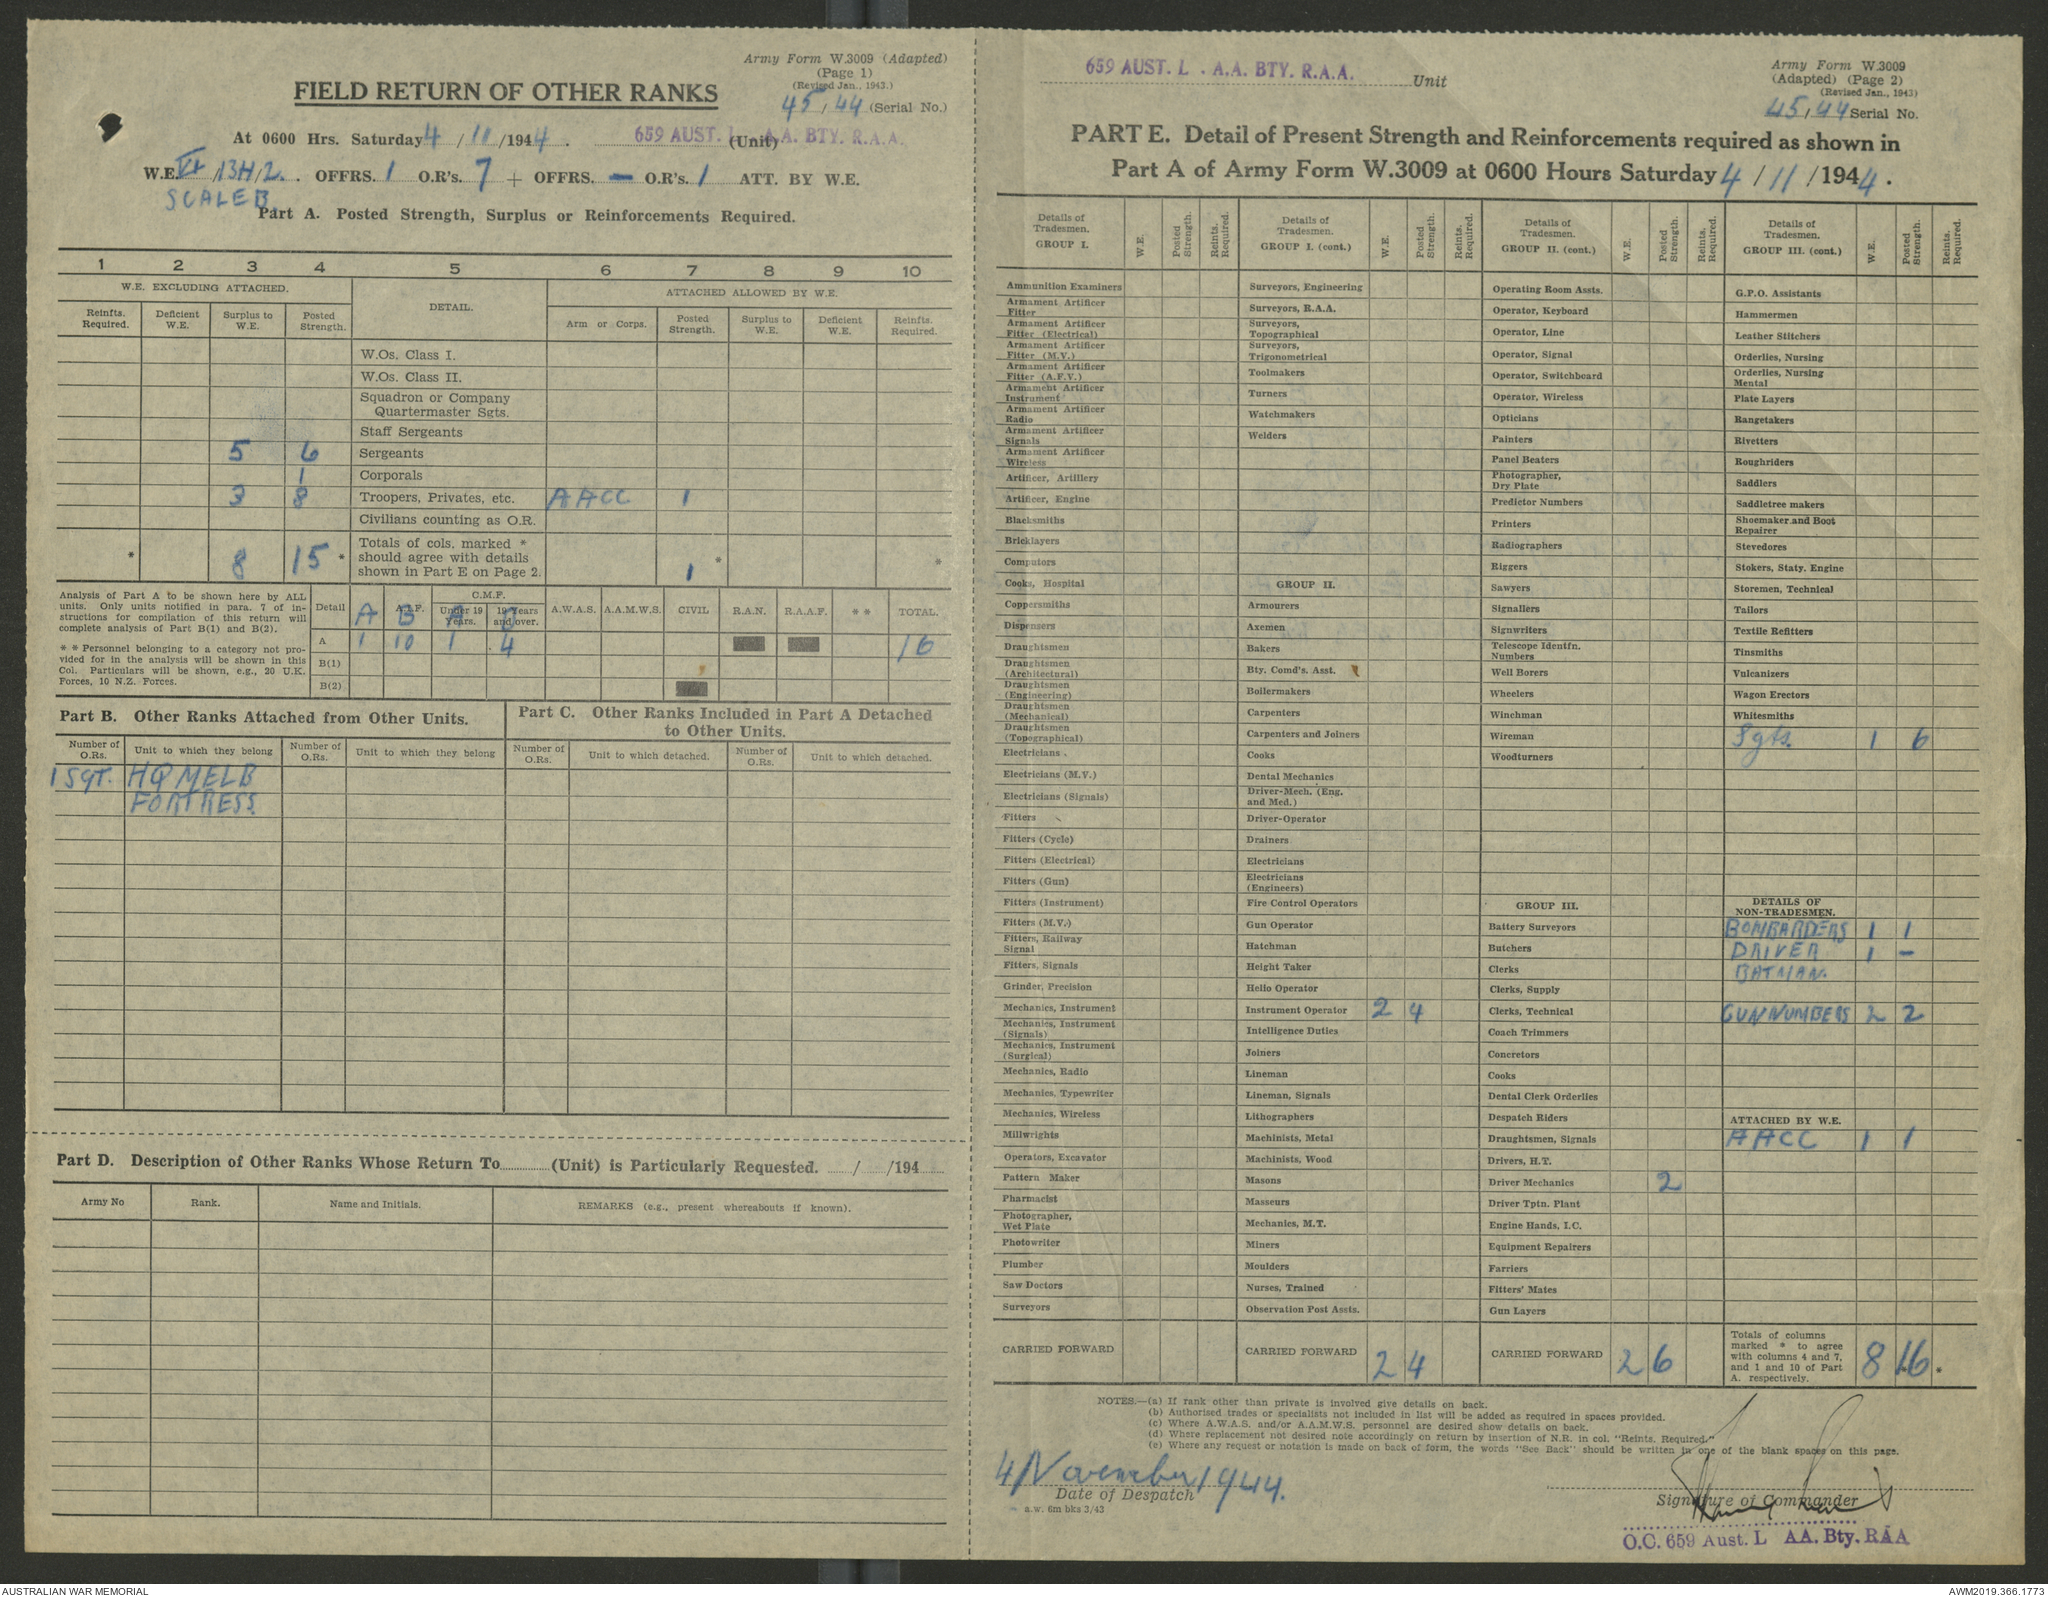 Army Form W.3009 (Adapted)
(Page 1)
(Revised Jan., 1943.)
FIELD RETURN OF OTHER RANKS
45/44 (Serial No.)
At 0600 Hrs. Saturday 4/11/1944. 659 AUST. L . A.A. BTY. R.A.A. (Unit)
W.E. VI /13H/2. OFFRS. 1 O.R's. 7 + OFFRS. – O.R's. 1 ATT. BY W.E.
SCALE B
Part A. Posted Strength, Surplus or Reinforcements Required.
1 2 3 4 5 6 7 8 9 10
W.E. EXCLUDING ATTACHED. DETAIL. ATTACHED ALLOWED BY W.E.
Reinfts. Required. Deficient W.E. Surplus to W.E. Posted Strength. Arm or Corps. Posted Strength. Surplus to W.E. Deficient W.E. Reinfts. Required.
W.Os. Class I.
W.Os. Class II.
Squadron or Company
Quartermaster Sgts.
Staff Sergeants
5 6 Sergeants
1 Corporals
3 8 Troopers, Privates, etc. AACC 1
Civilians counting as O.R.
* 8 15 * Totals of cols. marked * should agree with details shown in Part E on Page 2. 1 * *
Analysis of Part A to be shown here by ALL
units. Only units notified in para. 7 of in-
structions for compilation of this return will
complete analysis of Part B(1) and B(2).
* * Personnel belonging to a category not pro-
vided for in the analysis will be shown in this
Col. Particulars will be shown, e.g., 20 U.K.
Forces, 10 N.Z. Forces.
Detail A A.I.F. B C.M.F. Under 19 Years. A 19 Years and over. A.W.A.S. A.A.M.W.S. CIVIL R.A.N. R.A.A.F. * * TOTAL.
A 1 10 1 4 16
B(1)
B(2)
Part B. Other Ranks Attached from Other Units.
Part C. Other Ranks Included in Part A Detached
to Other Units.
Number of O.Rs. Unit to which they belong Number of O.Rs. Unit to which they belong Number of O.Rs. Unit to which detached. Number of O.Rs. Unit to which detached.
1 SGT. HQ MELB
FORTRESS.
Part D. Description of Other Ranks Whose Return To (Unit) is Particularly Requested. / /194
Army No Rank. Name and Initials. REMARKS (e.g., present whereabouts if known).
659 AUST. L . A.A. BTY. R.A.A. Unit
Army Form W.3009
(Adapted) (Page 2)
(Revised Jan., 1943)
45/44 Serial No.
PART E. Detail of Present Strength and Reinforcements required as shown in
Part A of Army Form W.3009 at 0600 Hours Saturday 4/11/1944.
Details of Tradesmen. GROUP I. W.E. Posted Strength. Reints. Required.
Ammunition Examiners
Armament Artificer Fitter
Armament Artificer Fitter (Electrical)
Armament Artificer Fitter (M.V.)
Armament Artificer Fitter (A.F.V.)
Armament Artificer Instrument
Armament Artificer Radio
Armament Artificer Signals
Armament Artificer Wireless
Artificer, Artillery
Artificer, Engine
Blacksmiths
Bricklayers
Computors
Cooks, Hospital
Coppersmiths
Dispensers
Draughtsmen
Draughtsmen (Architectural)
Draughtsmen (Engineering)
Draughtsmen (Mechanical)
Draughtsmen (Topographical)
Electricians
Electricians (M.V.)
Electricians (Signals)
Fitters
Fitters (Cycle)
Fitters (Electrical)
Fitters (Gun)
Fitters (Instrument)
Fitters (M.V.)
Fitters, Railway Signal
Fitters, Signals
Grinder, Precision
Mechanics, Instrument
Mechanics, Instrument (Signals)
Mechanics, Instrument (Surgical)
Mechanics, Radio
Mechanics, Typewriter
Mechanics, Wireless
Millwrights
Operators, Excavator
Pattern Maker
Pharmacist
Photographer, Wet Plate
Photowriter
Plumber
Saw Doctors
Surveyors
CARRIED FORWARD
Details of Tradesmen. GROUP I. (cont.) W.E. Posted Strength. Reints. Required.
Surveyors, Engineering
Surveyors, R.A.A.
Surveyors, Topographical
Surveyors, Trigonometrical
Toolmakers
Turners
Watchmakers
Welders
GROUP II.
Armourers
Axemen
Bakers
Bty. Comd's. Asst.
Boilermakers
Carpenters
Carpenters and Joiners
Cooks
Dental Mechanics
Driver-Mech. (Eng. and Med.)
Driver-Operator
Drainers
Electricians
Electricians (Engineers)
Fire Control Operators
Gun Operator
Hatchman
Height Taker
Helio Operator
Instrument Operator 2 4
Intelligence Duties
Joiners
Lineman
Lineman, Signals
Lithographers
Machinists, Metal
Machinists, Wood
Masons
Masseurs
Mechanics, M.T.
Miners
Moulders
Nurses, Trained
Observation Post Assts.
CARRIED FORWARD 2 4
Details of Tradesmen. GROUP II. (cont.) W.E. Posted Strength. Reints. Required.
Operating Room Assts.
Operator, Keyboard
Operator, Line
Operator, Signal
Operator, Switchboard
Operator, Wireless
Opticians
Painters
Panel Beaters
Photographer, Dry Plate
Predictor Numbers
Printers
Radiographers
Riggers
Sawyers
Signallers
Signwriters
Telescope Identfn. Numbers
Well Borers
Wheelers
Winchman
Wireman
Woodturners
GROUP III.
Battery Surveyors
Butchers
Clerks
Clerks, Supply
Clerks, Technical
Coach Trimmers
Concretors
Cooks
Dental Clerk Orderlies
Despatch Riders
Draughtsmen, Signals
Drivers, H.T.
Driver Mechanics 2
Driver Tptn. Plant
Engine Hands, I.C.
Equipment Repairers
Farriers
Fitters' Mates
Gun Layers
CARRIED FORWARD 2 6
Details of Tradesmen. GROUP III. (cont.) W.E. Posted Strength. Reints. Required.
G.P.O. Assistants
Hammermen
Leather Stitchers
Orderlies, Nursing
Orderlies, Nursing Mental
Plate Layers
Rangetakers
Rivetters
Roughriders
Saddlers
Saddletree makers
Shoemaker and Boot Repairer
Stevedores
Stokers, Staty. Engine
Storemen, Technical
Tailors
Textile Refitters
Tinsmiths
Vulcanizers
Wagon Erectors
Whitesmiths
Sgts. 1 6
DETAILS OF NON-TRADESMEN.
BOMBARDERS 1 1
DRIVER 1 –
BATMAN.
GUNNUMBERS 2 2
ATTACHED BY W.E.
AACC 1 1
Totals of columns marked * to agree with columns 4 and 7, and 1 and 10 of Part A. respectively. 8 16 *
NOTES.—(a) If rank other than private is involved give details on back.
(b) Authorised trades or specialists not included in list will be added as required in spaces provided.
(c) Where A.W.A.S. and/or A.A.M.W.S. personnel are desired show details on back.
(d) Where replacement not desired note accordingly on return by insertion of N.R. in col. "Reints. Required."
(e) Where any request or notation is made on back of form, the words "See Back" should be written in one of the blank spaces on this page.
4 November 1944.
Date of Despatch
a.w. 6m bks 3/43
Signature of Commander
O.C. 659 Aust. L AA. Bty. RAA
AUSTRALIAN WAR MEMORIAL
AWM2019.366.1773